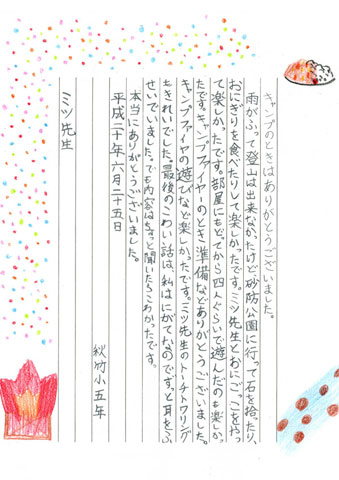 キャンプのときはありがとうございました。
雨がふって登山は出来なかたけど、砂防公園に行って石を拾ったり、
おにぎりを食べたりして楽しかったです。ミツ先生とおにごっこをやっ
て楽しかったです。部屋にもどってから四人ぐらいで遊んだのも楽しかっ
たです。キャンプファイヤーのとき準備などありがとうございました。
キャンプファイヤの遊びなど楽しかったです。ミツ先生のトーチトワリング
もきれいでした。最後のこわい話は、私はにがてなのでずっと耳をふ
せいでいました。でも内容はちょっと聞いたらこわかったです。
本当にありがとうございました。
平成二十年六月二十五日
秋竹小五年
ミツ先生